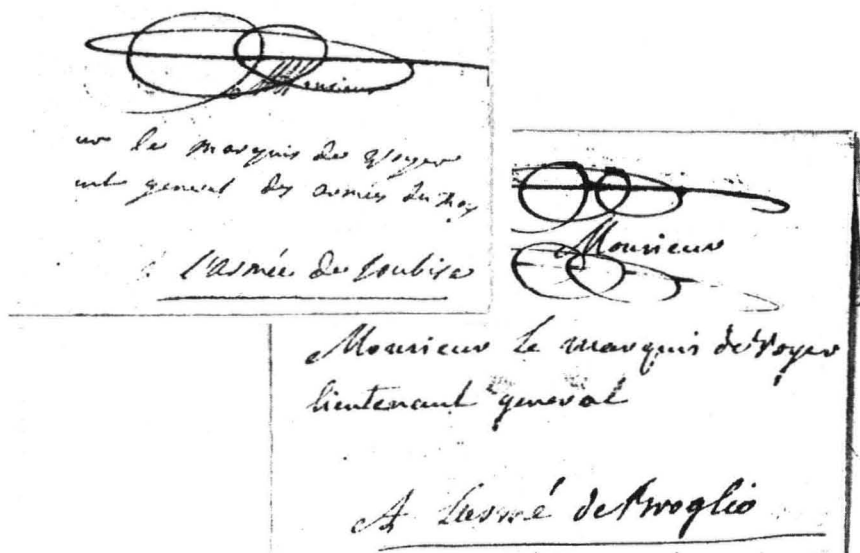 Monsieur
le marquis de Voyer
ant general des armées du Roy
L'armée de Soubise
Monsieur
Monsieur Le marquis de Voyer
lieutenant general
A Larmé de Broglio